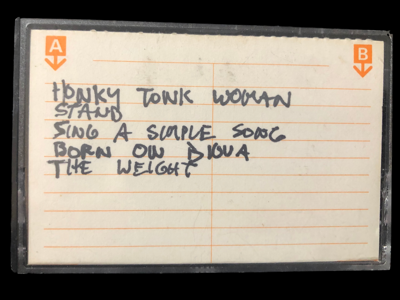 A B
HONKY TONK WOMAN
STAND
SING A SIMPLE SONG
BORN ON
THE WEIGHT